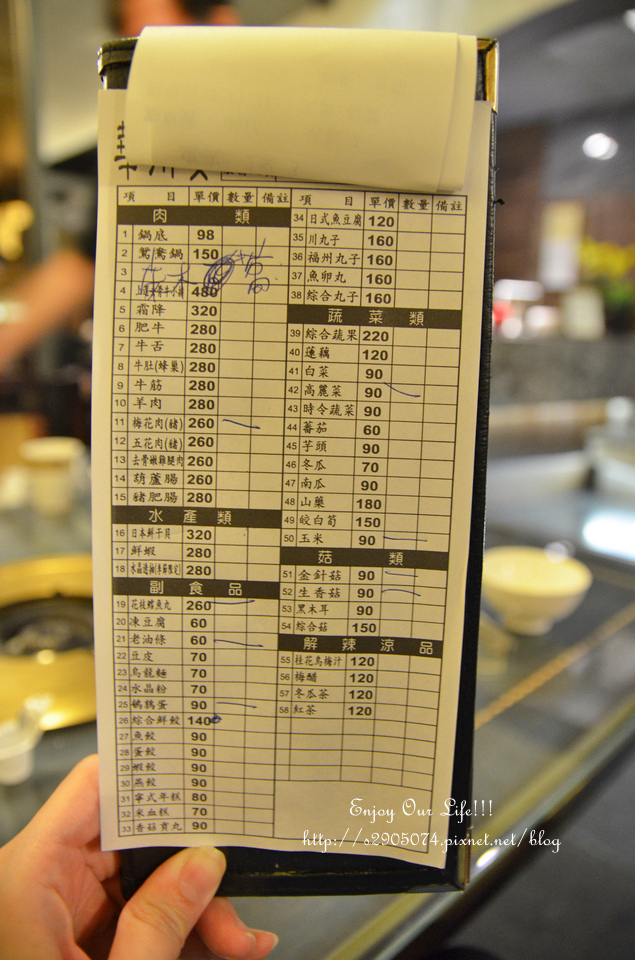 項 目 單價 數量 備註
肉 類
1 鍋底 98
2 鴛鴦鍋 150
3
4 480
5 霜降 320
6 肥牛 280
7 牛舌 280
8 牛肚(蜂巢) 280
9 牛筋 280
10 羊肉 280
11 梅花肉(豬) 260
12 五花肉(豬) 260
13 去骨嫩雞腿肉 260
14 葫蘆腸 260
15 豬肥腸 280
水 產 類
16 日本鮮干貝 320
17 鮮蝦 280
18 280
副 食 品
19 花枝鱈魚丸 260
20 凍豆腐 60
21 老油條 60
22 豆皮 70
23 烏龍麵 70
24 水晶粉 70
25 鵪鶉蛋 90
26 綜合鮮餃 140
27 魚餃 90
28 蛋餃 90
29 蝦餃 90
30 燕餃 90
31 寧式年糕 80
32 米血糕 70
33 香菇貢丸 90
項 目 單價 數量 備註
34 日式魚豆腐 120
35 川丸子 160
36 福州丸子 160
37 魚卵丸 160
38 綜合丸子 160
蔬 菜 類
39 綜合蔬果 220
40 蓮藕 120
41 白菜 90
42 高麗菜 90
43 時令蔬菜 90
44 蕃茄 60
45 芋頭 90
46 冬瓜 70
47 南瓜 90
48 山藥 180
49 皎白筍 150
50 玉米 90
菇 類
51 金針菇 90
52 生香菇 90
53 黑木耳 90
54 綜合菇 150
解 辣 涼 品
55 桂花烏梅汁 120
56 梅醋 120
57 冬瓜茶 120
58 紅茶 120
Enjoy Our Life!!!
http://s2905074.pixnet.net/blog